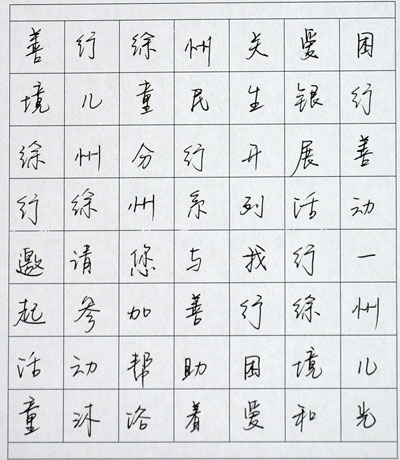 善行徐州关爱困
境儿童民生银行
徐州分行开展善
行徐州系列活动
邀请您与我行一
起参加善行徐州
活动帮助困境儿
童沐浴着爱和光